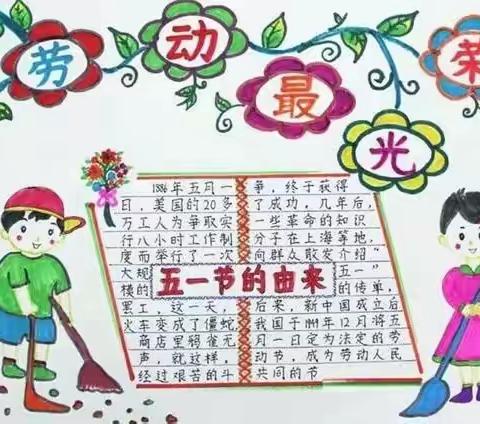 劳动最光荣
五一节的由来
1886年五月一
日，美国的20多
万工人为争取实
行八小时工作制
度而举行了一次
大规
模的
罢工，这一天，
火车变成了僵蛇，
商店里鸦雀无
声，就这样，
经过艰苦的斗
争，终于获得
了成功，几年后，
一些革命的知识
分子在上海等地，
向群众散发介绍"
五一"
的传单，
后来，新中国成立后
我国于1949年12月将五
月一日定为法定的劳
动节，成为劳动人民
共同的节